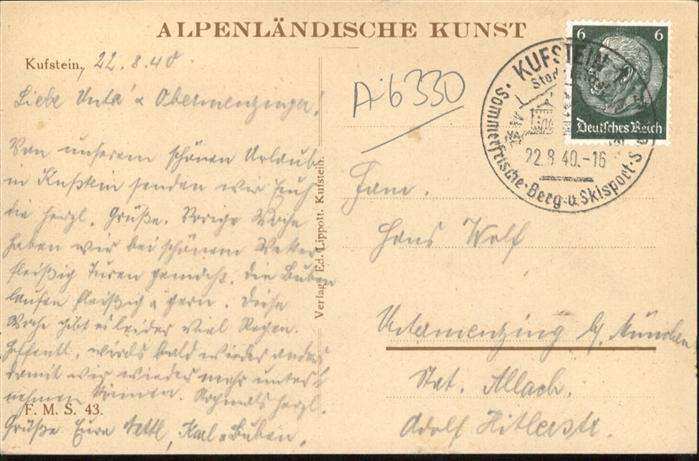 ALPENLÄNDISCHE KUNST
Kufstein, 22.8.40.
Liebe Unta' & Obermenzinger!
Von unserem schönen Urlaub
in Kufstein senden wir Euch
die herzl. Grüße. Vorige Woche
haben wir bei schönem Wetter
fleißig Turen gemacht. Die Buben
laufen fleißig & gern. Diese
Woche gibt es leider viel Regen.
Hoffentl. wirds bald wieder anders
damit wir wieder mehr unter
nehmen können. Nochmals herzl.
Grüße Eure Karl & Buben.
F. M. S. 43.
Verlag Ed. Lippott, Kufstein.
A-6330
KUFSTEIN
Sommerfrische-Berg-u.Skisport-
22.8.40.-16
6 6
Deutsches Reich
Fam.
Hans Wolf
Untamenzing b/ München
Stat. Allach.
Adolf Hitlerstr.